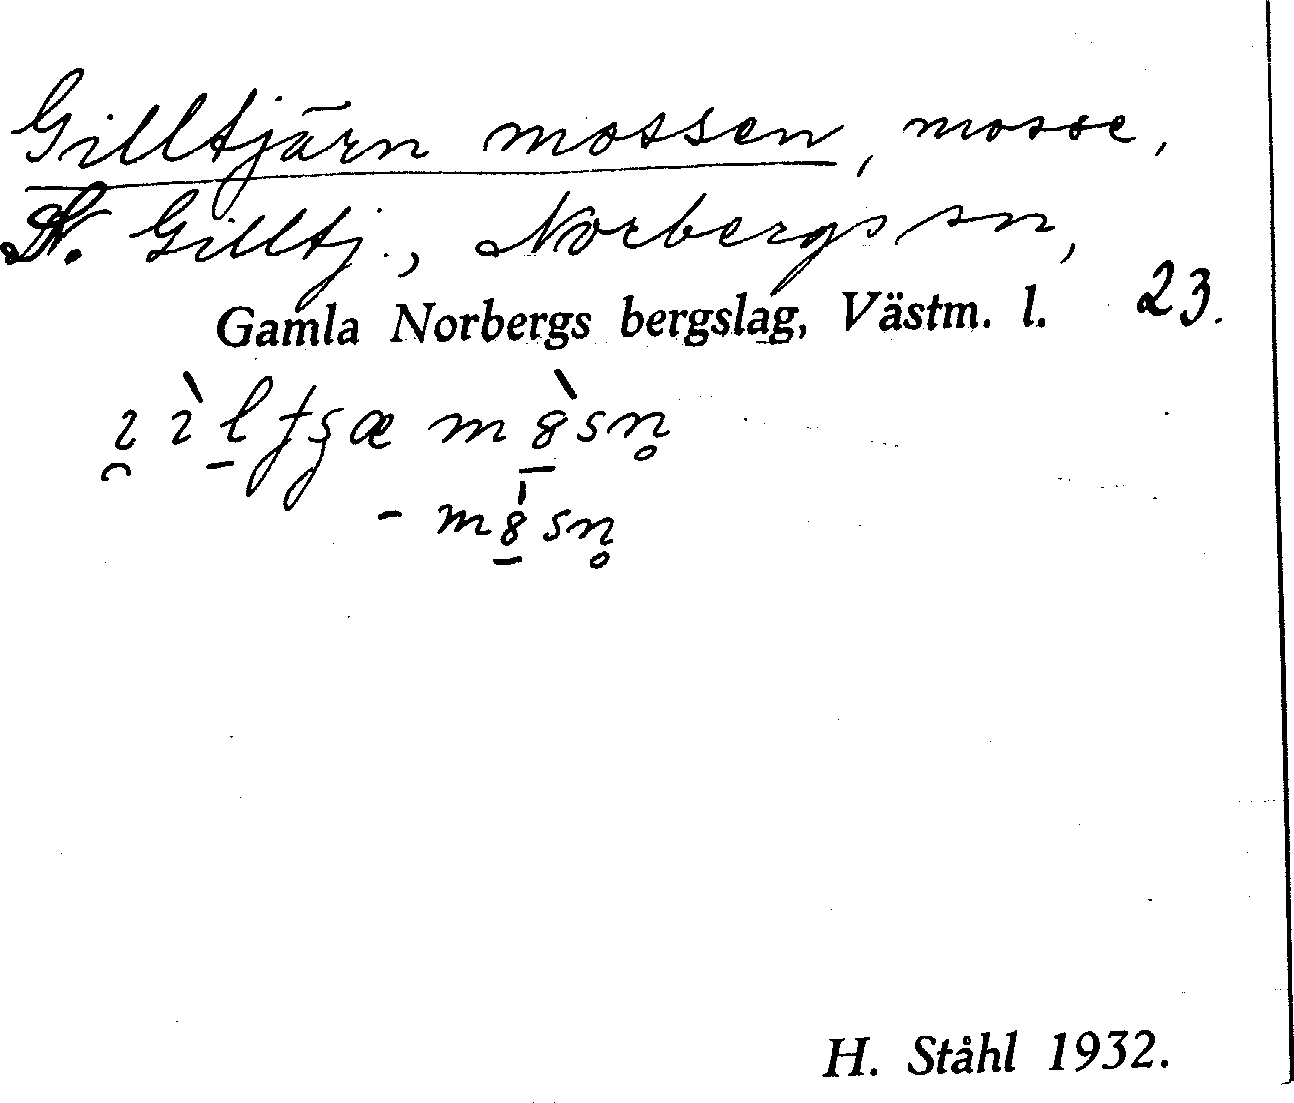 Gilltjärn mossen, mosse,
N. Gilltj., Norbergs sn,
Gamla Norbergs bergslag, Västm. l. 23.
- m8sn̥
H. Ståhl 1932.